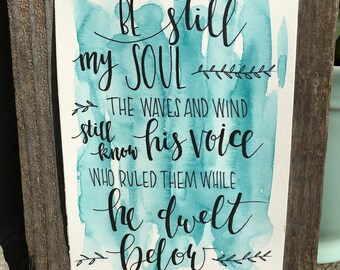 BE still
my SOUL
THE WAVES AND WIND
still know his voice
WHO RULED THEM WHILE
he dwelt
below